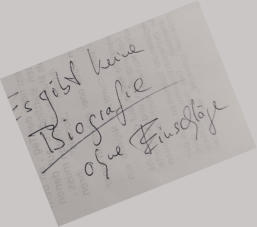 Es gibt keine
Biografie
ohne Einschläge